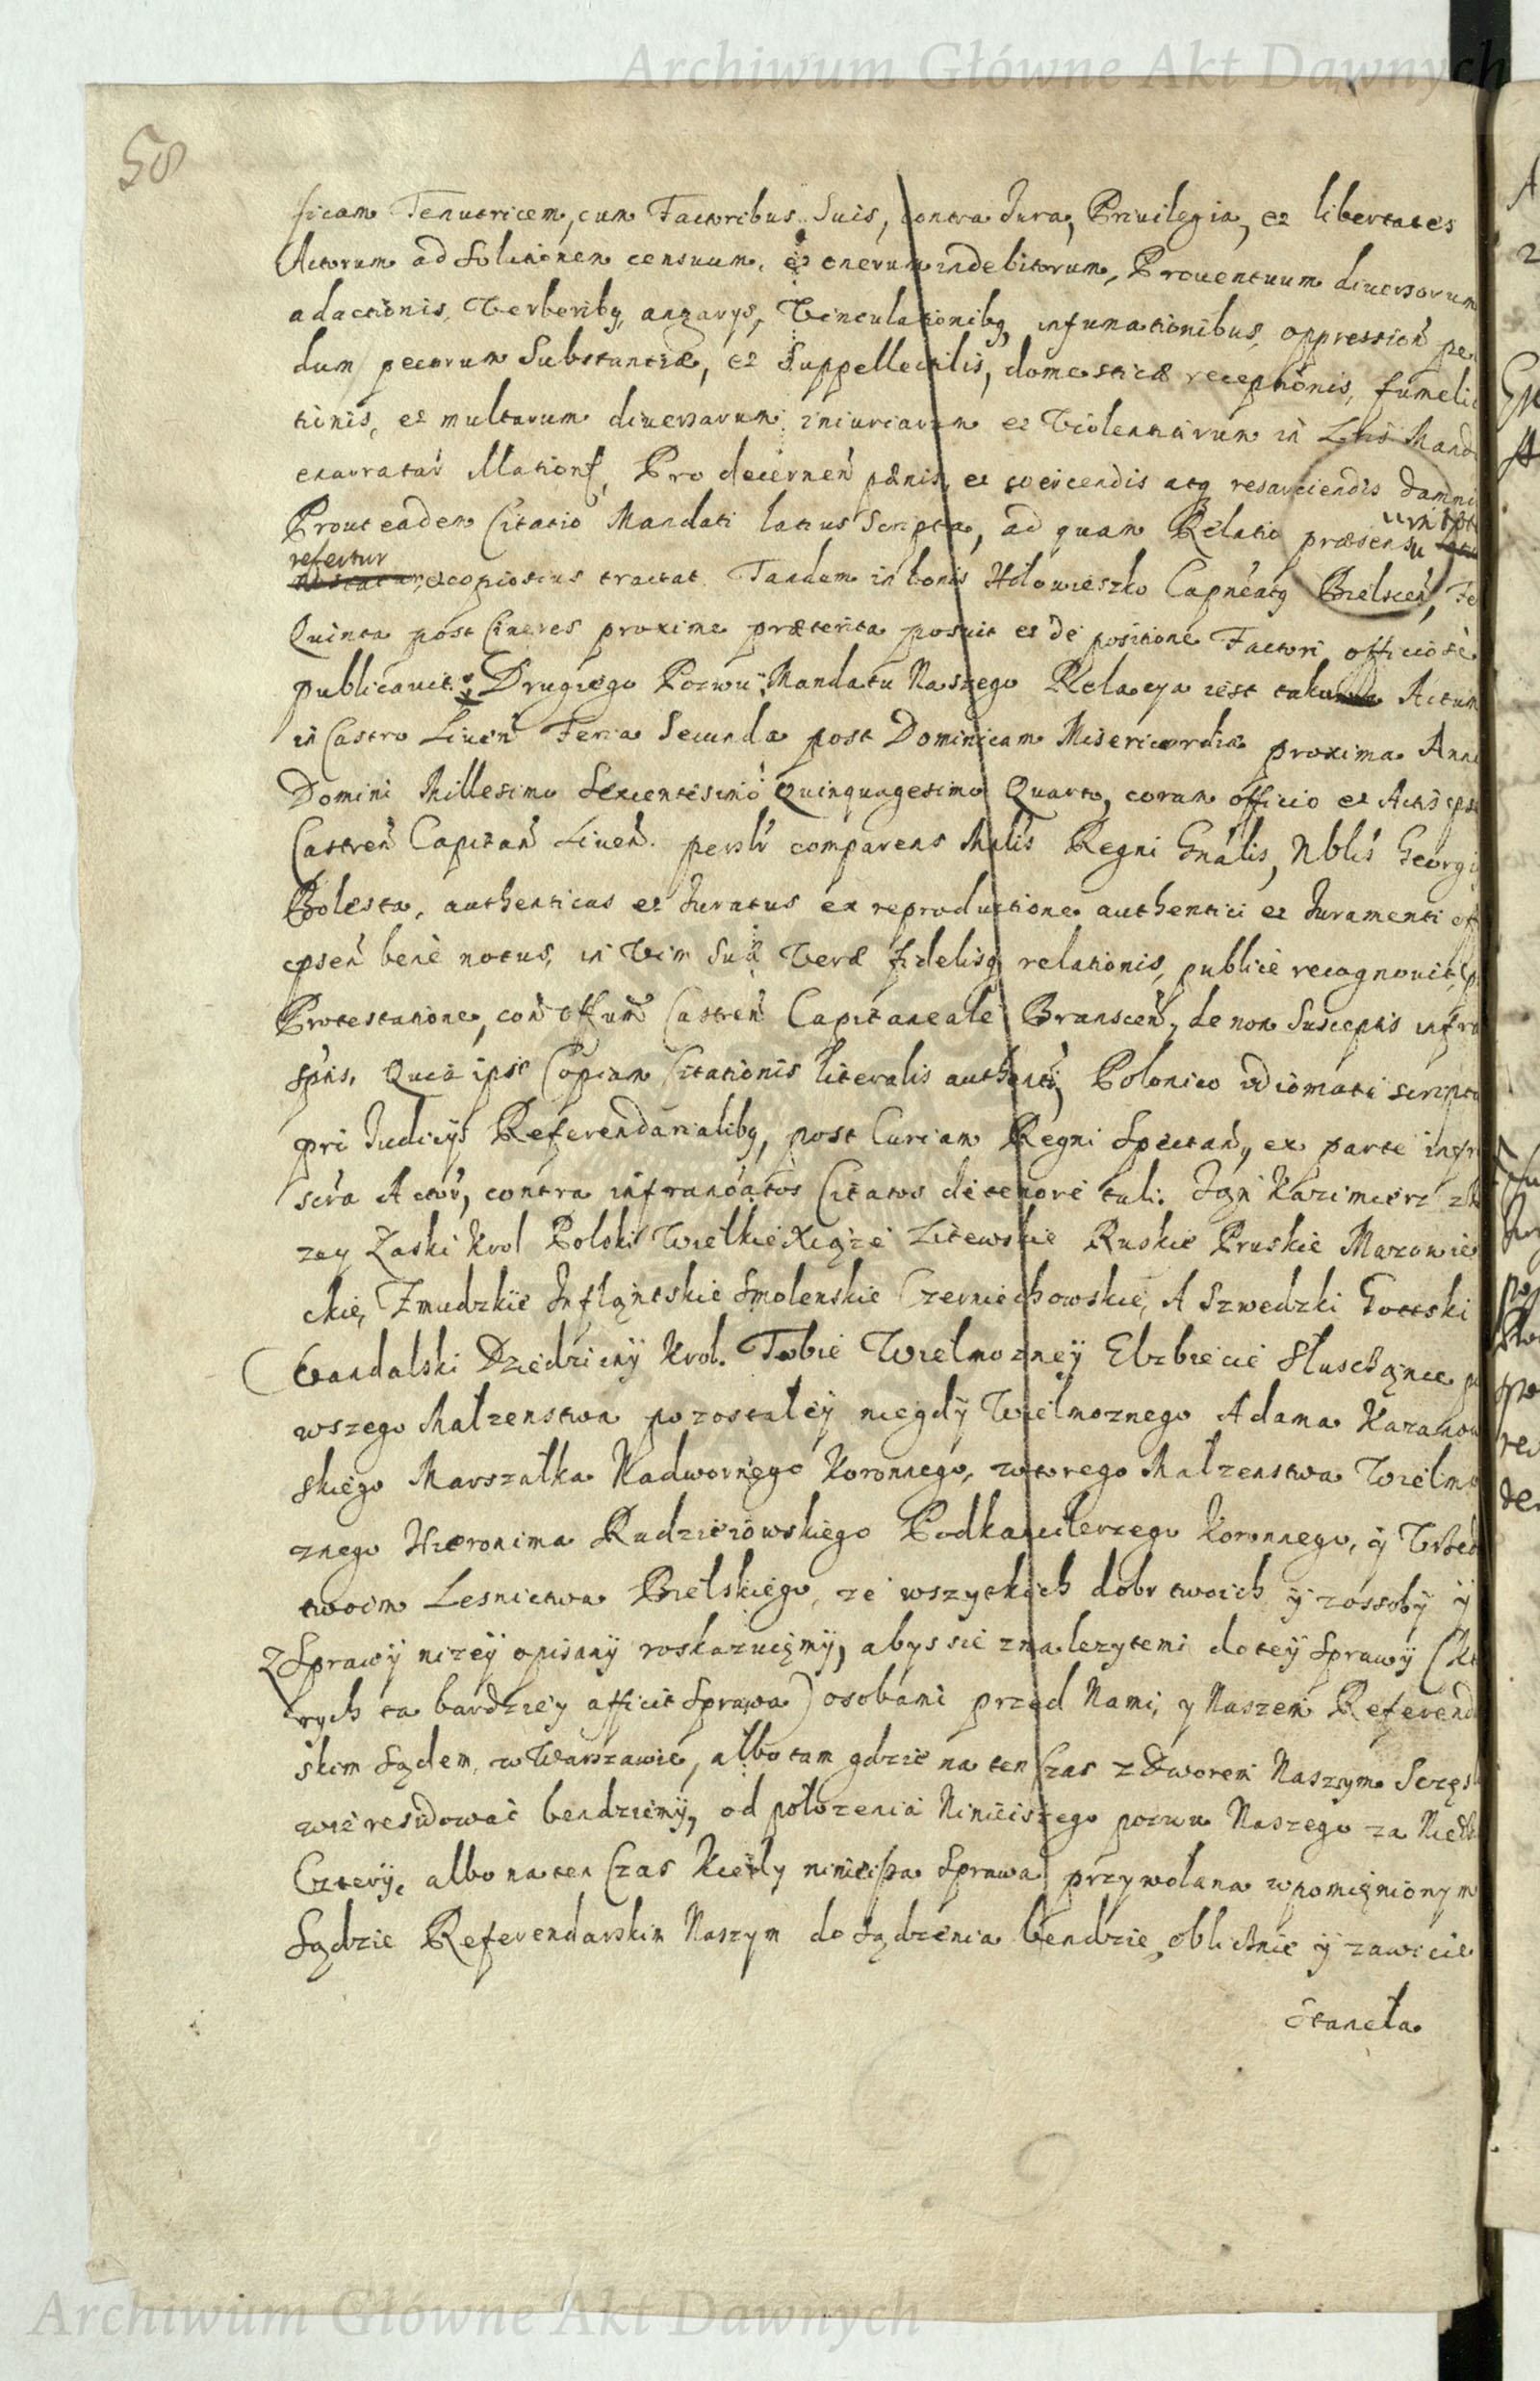 Archiwum Główne Akt Dawnych
58
ficam Tenutricem, cum Factoribus Suis, contra Jura, Privilegia, et libertates
Actorum ad Solutionem censuum, et onerum indebitorum, Proventuum diversorum
adactionis, Verberibq, angarys, Vinculationibq, infumationibus, oppression pe
dum pecorum Substantiæ, et Suppellectilis, domesticæ receptionis, fameli
tionis, et multarum diversarum iniuriarum et Violentiarum in Lris Mand
enarratar illation, Pro decernen pænis, et coercendis atq resarciendis damni
Prout eadem Citatio Mandati latius Scripta, ad quam Relatio præsens
refertur
et copiosius tractat. Tandem in bonis Hołowieszko Capneatq Bielscen, Fe
Quinta post Cineres proxime præterita posuit et de positione Factori officiose
publicavit. Drugiego Pozwu Mandatu Naszego Relacya iest taka Actum
in Castro Liven Feria Secunda post Dominicam Misericordia proxima Anno
Domini Millesimo Sexcentesimo Quinquagesimo Quarto, coram officio et Actis
Castren Capitan Liven. persltr comparens Mnlis Regni Gnalis, Nblis Georgi
Bolesta, authenticus et Juratus ex reproductione authentici et Juramenti
epsen bene notus, in Vim Suæ Veræ fidelisq relationis, publice recognovit,
Protestatione, con Offum Castren Capitaneale Branscen, de non Susceptis infra
Sptis, Quia ipse Copiam Citationis literalis authenti, Polonico idiomati scripta
pri Judicys Referendarialibq, post Curiam Regni Spectan, ex parte infr
scra Actor, contra infranoatos Citatos de tenore tali. Jan Kazimierz z
zey Łaski Krol Polski Wielkie Xiąze Litewskie Ruskie Pruskie Mazowie
ckie, Zmudzkie Inflantskie Smolenskie Czerniechowskie, A Szwedzki Gottski
Vandalski Dziedziczny Krol. Tobie Wielmozney Elzbiecie Słuszczance
wszego Małzenstwa pozostałey niegdy Wielmoznego Adama Kazanow
skiego Marszałka Nadwornego Koronnego, wtorego Małzenstwa Wielmo
znego Hieronima Radzieiowskiego Podkanclerzego Koronnego, y Urzed
twoim Lesnictwa Bielskiego, ze wszytkich dobr twoich y zossoby y
z Sprawy nizey opisany roskazuięmy, abys sie znalezytemi do tey Sprawy (kt
rych ta bardziey afficit Sprawa) osobami przed Nami, y Naszem Referend
skim Sądem, w Warszawie, albo tam gdzie na ten Czas z Dworem Naszym Szczęs
wie residować bendziemy, od położenia Ninieiszego pozwu Naszego za Niedz
Cztery, albo na ten Czas kiedy ninieisza Sprawa przywołana wpomięnionym
Sądzie Referendarskim Naszym do Sądzenia bendzie, oblicznie y zawicie
Staneła
Archiwum Główne Akt Dawnych